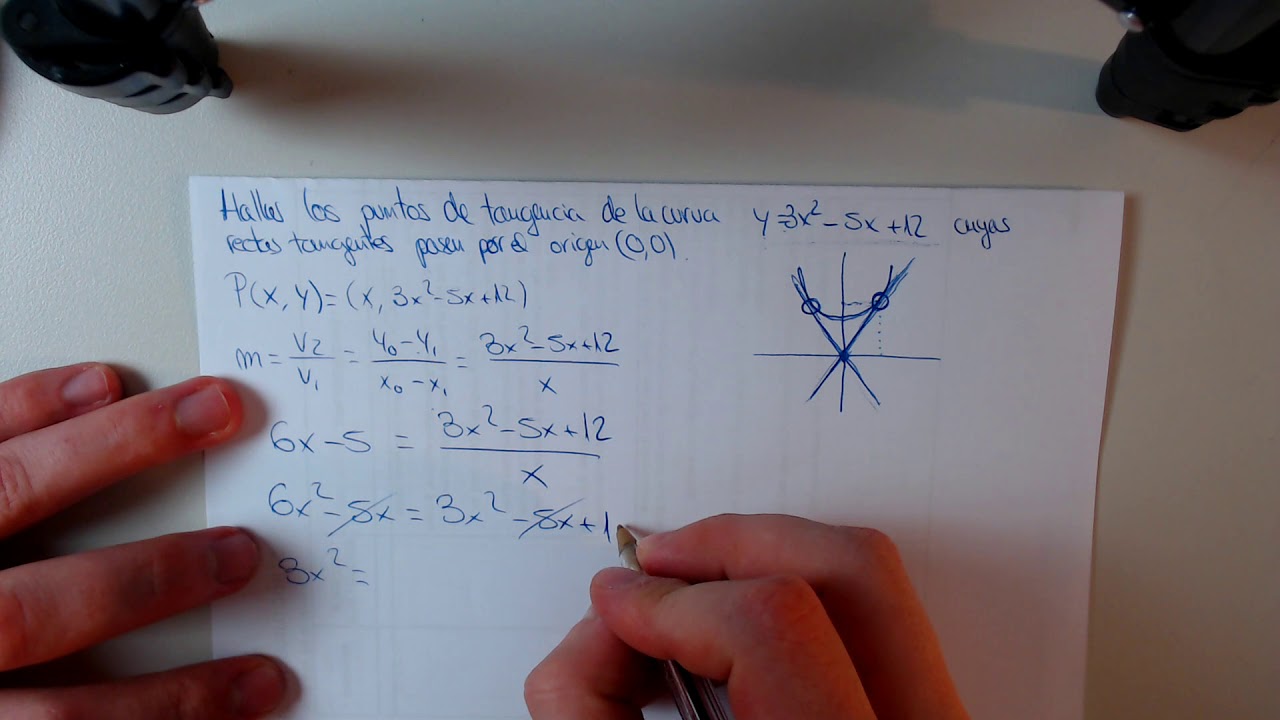 Hallar los puntos de tangencia de la curva y=3x²-5x+12 cuyas
rectas tangentes pasen por el origen (0,0).
P(x, y)=(x, 3x²-5x+12)
m = v₂/v₁ = (y₀-y₁)/(x₀-x₁) = (3x²-5x+12)/x
6x-5 = (3x²-5x+12)/x
6x²-5x = 3x²-5x+1
3x²=